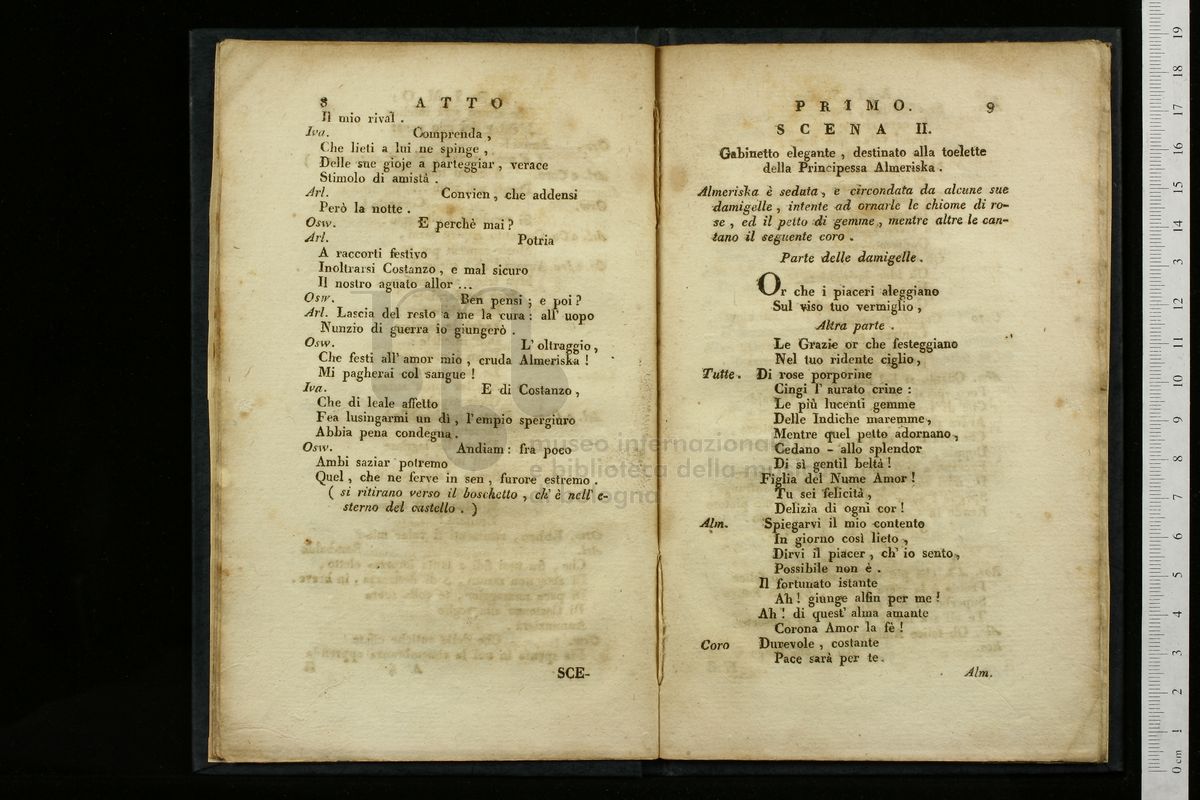 8 ATTO
Il mio rival .
Iva. Comprenda ,
Che lieti a lui ne spinge ,
Delle sue gioje a parteggiar , verace
Stimolo di amistà .
Arl. Convien , che addensi
Però la notte .
Osw. E perchè mai ?
Arl. Potria
A raccorti festivo
Inoltrarsi Costanzo , e mal sicuro
Il nostro aguato allor ...
Osw. Ben pensi ; e poi ?
Arl. Lascia del resto a me la cura : all' uopo
Nunzio di guerra io giungerò .
Osw. L' oltraggio ,
Che festi all' amor mio , cruda Almeriska !
Mi pagherai col sangue !
Iva. E di Costanzo ,
Che di leale affetto
Fea lusingarmi un dì , l'empio spergiuro
Abbia pena condegna .
Osw. Andiam : fra poco
Ambi saziar potremo
Quel , che ne ferve in sen , furore estremo .
( si ritirano verso il boschetto , ch' è nell' e-
sterno del castello . )
SCE-
PRIMO. 9
SCENA II.
Gabinetto elegante , destinato alla toelette
della Principessa Almeriska .
Almeriska è seduta , e circondata da alcune sue
damigelle , intente ad ornarle le chiome di ro-
se , ed il petto di gemme , mentre altre le can-
tano il seguente coro .
Parte delle damigelle .
Or che i piaceri aleggiano
Sul viso tuo vermiglio ,
Altra parte .
Le Grazie or che festeggiano
Nel tuo ridente ciglio ,
Tutte . Di rose porporine
Cingi l' aurato crine :
Le più lucenti gemme
Delle Indiche maremme ,
Mentre quel petto adornano ,
Cedano - allo splendor
Di sì gentil beltà !
Figlia del Nume Amor !
Tu sei felicità ,
Delizia di ogni cor !
Alm. Spiegarvi il mio contento
In giorno così lieto ,
Dirvi il piacer , ch' io sento ,
Possibile non è .
Il fortunato istante
Ah ! giunge alfin per me !
Ah ! di quest' alma amante
Corona Amor la fè !
Coro Durevole , costante
Pace sarà per te .
Alm.
museo internazionale
e biblioteca della mu
bologna
0 cm 1 2 3 4 5 6 7 8 9 10 11 12 13 14 15 16 17 18 19